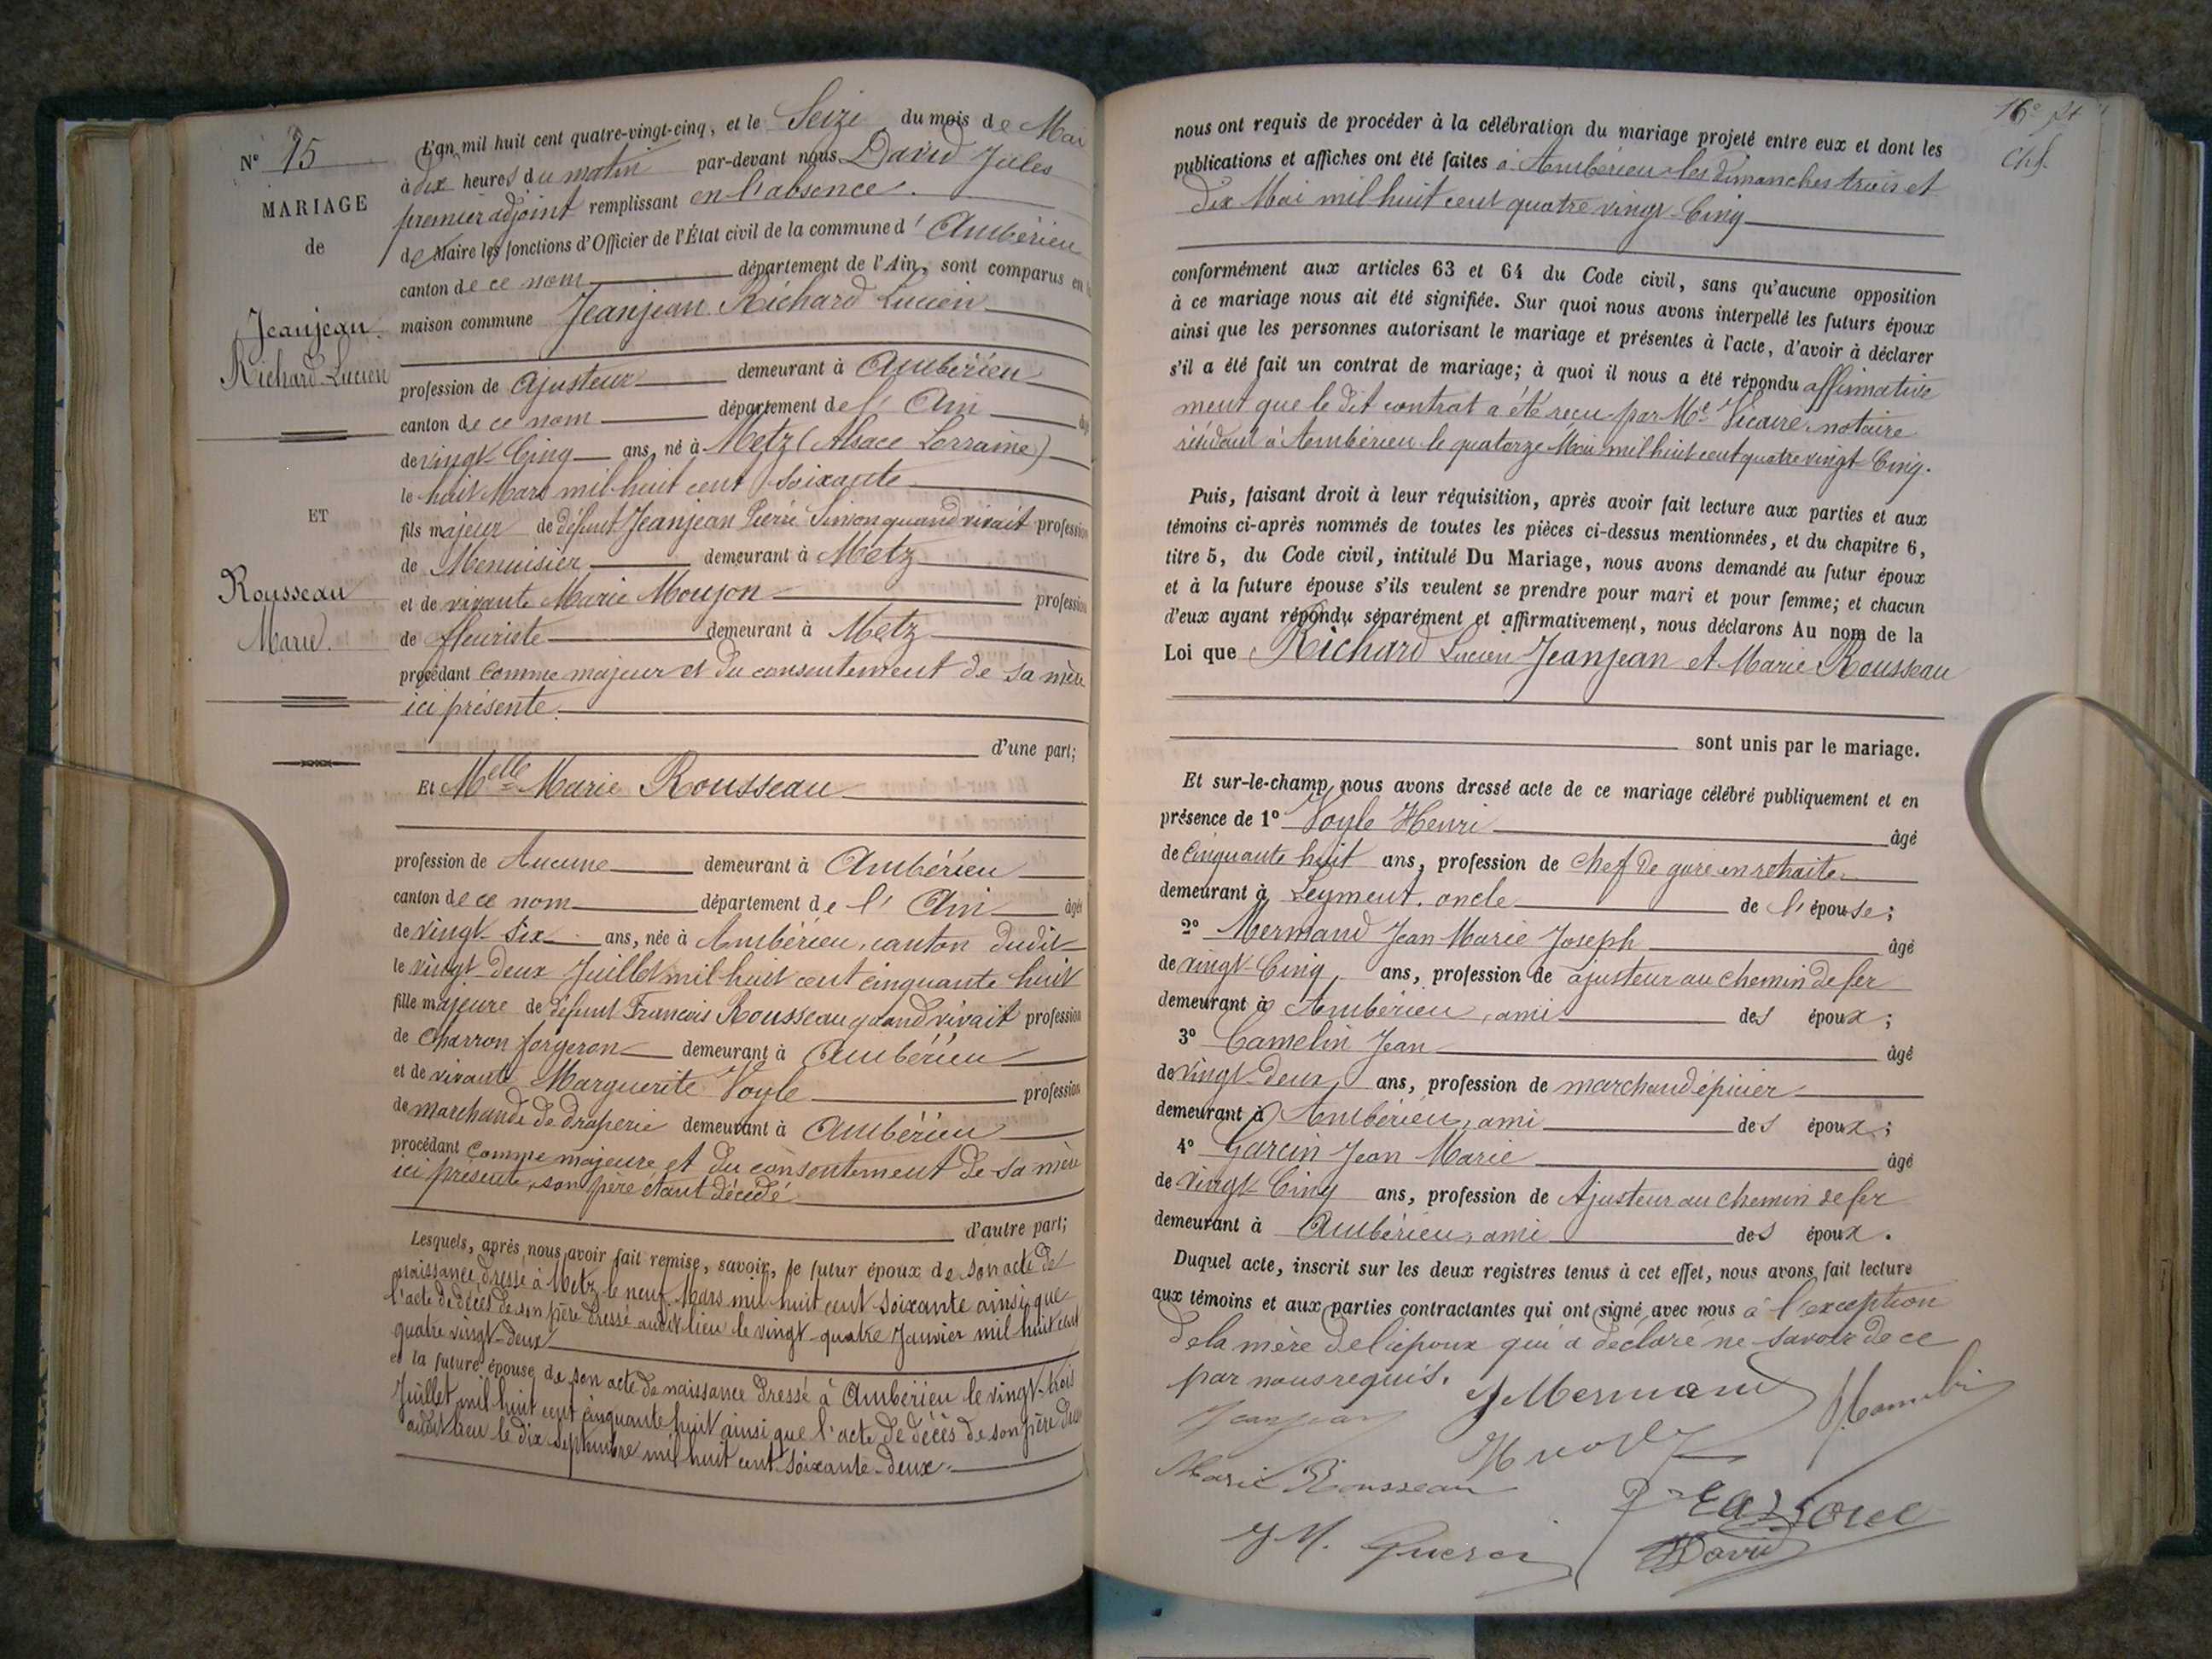 N° 15
MARIAGE
de
Jeanjean
Richard Lucien
ET
Rousseau
Marie
L'an mil huit cent quatre-vingt-cinq, et le Seize du mois de Mai
à dix heures du matin par-devant nous David Jules
premier adjoint remplissant en l'absence
de Maire les fonctions d'Officier de l'État civil de la commune d'Ambérieu
canton de ce nom département de l'Ain, sont comparus en
maison commune Jeanjean Richard Lucien
profession de ajusteur demeurant à Ambérieu
canton de ce nom département de l'Ain
de vingt Cinq ans, né à Metz (Alsace Lorraine)
le huit Mars mil huit cent soixante
fils majeur de défunt Jeanjean Pierre Simon quand vivait profession
de Menuisier demeurant à Metz
et de vivante Marie Moujon profession
de fleuriste demeurant à Metz
procédant comme majeur et du consentement de sa mère
ici présente.
d'une part;
Et Melle Marie Rousseau
profession de Aucune demeurant à Ambérieu
canton de ce nom département de l'Ain âgée
de vingt six ans, née à Ambérieu, canton dudit
le vingt-deux Juillet mil huit cent cinquante huit
fille majeure de défunt Francois Rousseau quand vivait profession
de Charron forgeron demeurant à Ambérieu
et de vivante Marguerite Voyle profession
de marchande de draperie demeurant à Ambérieu
procédant comme majeure et du consentement de sa mère
ici présente, son père étant décédé
d'autre part;
Lesquels, après nous avoir fait remise, savoir, le futur époux de son acte de
naissance dressé à Metz le neuf Mars mil huit cent soixante ainsi que
l'acte de décès de son père dressé audit lieu le vingt-quatre Janvier mil huit cent
quatre vingt-deux
et la future épouse de son acte de naissance dressé à Ambérieu le vingt-trois
Juillet mil huit cent cinquante huit ainsi que l'acte de décès de son père
audit lieu le dix septembre mil huit cent soixante-deux.
nous ont requis de procéder à la célébration du mariage projeté entre eux et dont les
publications et affiches ont été faites à Ambérieu les dimanches trois et
dix Mai mil huit cent quatre vingt-Cinq
conformément aux articles 63 et 64 du Code civil, sans qu'aucune opposition
à ce mariage nous ait été signifiée. Sur quoi nous avons interpellé les futurs époux
ainsi que les personnes autorisant le mariage et présentes à l'acte, d'avoir à déclarer
s'il a été fait un contrat de mariage; à quoi il nous a été répondu affirmative
ment que le dit contrat a été recu par Me Vicaire, notaire
résidant à Ambérieu le quatorze Mai mil huit cent quatre vingt-Cinq.
Puis, faisant droit à leur réquisition, après avoir fait lecture aux parties et aux
témoins ci-après nommés de toutes les pièces ci-dessus mentionnées, et du chapitre 6,
titre 5, du Code civil, intitulé Du Mariage, nous avons demandé au futur époux
et à la future épouse s'ils veulent se prendre pour mari et pour femme; et chacun
d'eux ayant répondu séparément et affirmativement, nous déclarons Au nom de la
Loi que Richard Lucien Jeanjean et Marie Rousseau
sont unis par le mariage.
Et sur-le-champ nous avons dressé acte de ce mariage célébré publiquement et en
présence de 1° Voyle Henri âgé
de cinquante huit ans, profession de chef de gare en retraite
demeurant à Leyment, oncle de l'épouse;
2° Mermand Jean Marie Joseph âgé
de vingt-Cinq ans, profession de ajusteur au chemin de fer
demeurant à Ambérieu, ami des époux;
3° Camelin Jean âgé
de vingt-deux ans, profession de marchand épicier
demeurant à Ambérieu, ami des époux;
4° Garcin Jean Marie âgé
de Vingt-Cinq ans, profession de Ajusteur au chemin de fer
demeurant à Ambérieu, ami des époux.
Duquel acte, inscrit sur les deux registres tenus à cet effet, nous avons fait lecture
aux témoins et aux parties contractantes qui ont signé avec nous à l'exception
de la mère de l'époux qui a déclaré ne savoir de ce
par nous requis.
J Mermand
Jeanjean
Marie Rousseau
David